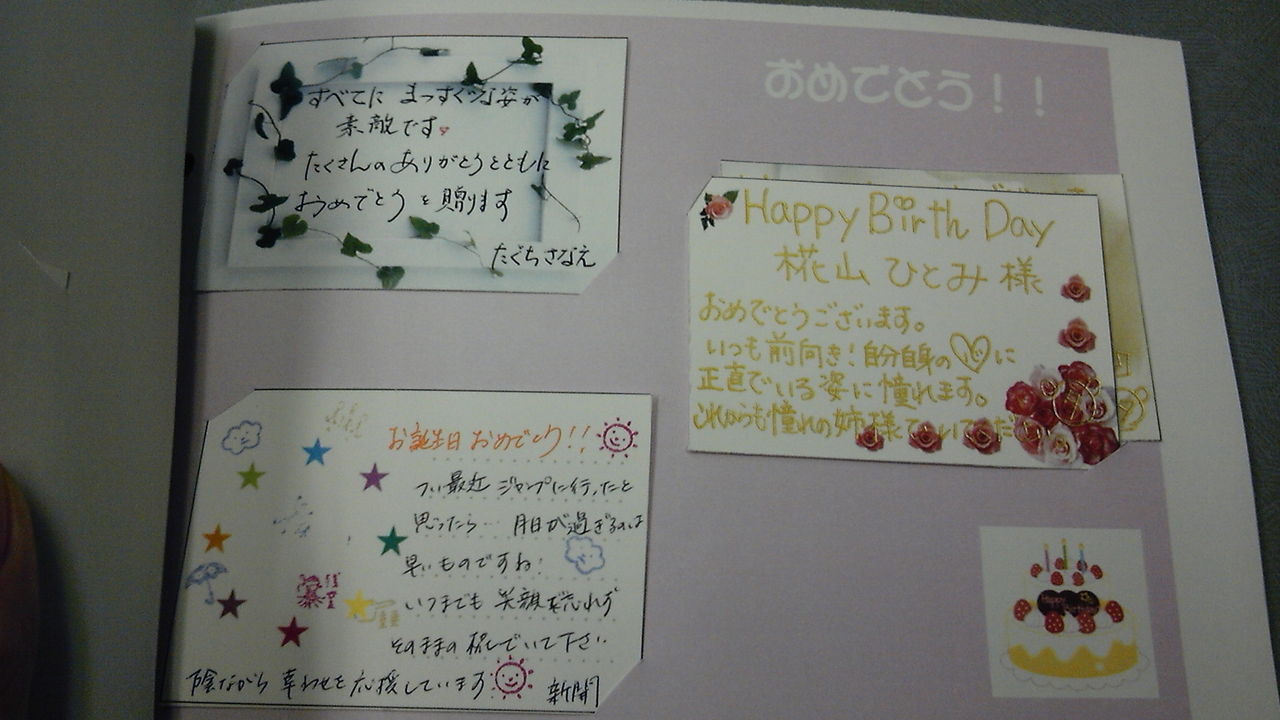 おめでとう！！
すべてに まっすぐな姿が
素敵です
たくさんのありがとうとともに
おめでとうを贈ります
たぐちさなえ
Happy Birth Day
椛山 ひとみ 様
おめでとうございます。
いつも前向き！自分自身の♡に
正直でいる姿に憧れます。
これからも憧れの姉様で
お誕生日 おめでとう!!
つい最近 ジャンプに行ったと
思ったら… 月日が過ぎるのは
早いものですね!
いつまでも 笑顔を忘れず
そのままの でいて下さい
陰ながら 幸わせを応援しています
新開